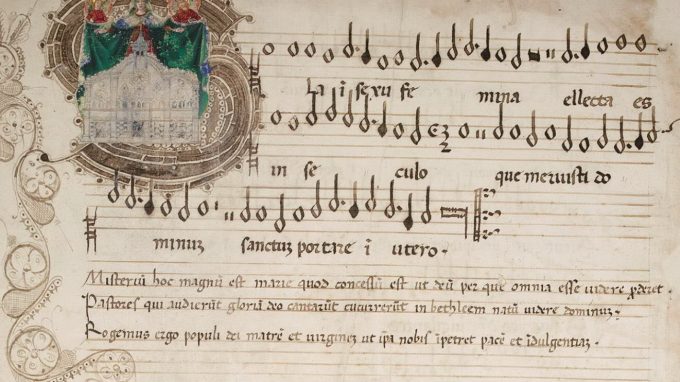 la ī sexu fe mina ellecta es
in se culo que meruisti do
minuz sanctuz portare ī utero.
Misteriū hoc magnū est marie quod concessū est ut deū per que omnia esse videre p̄deret.
Pastores qui audierūt gloriā deo cantarūt cucurrerūt in bethleem natū videre dominuz.
Rogemus ergo populi dei matrē et virginez ut ip̄a nobis īpetret pacē et īdulgentiaz.